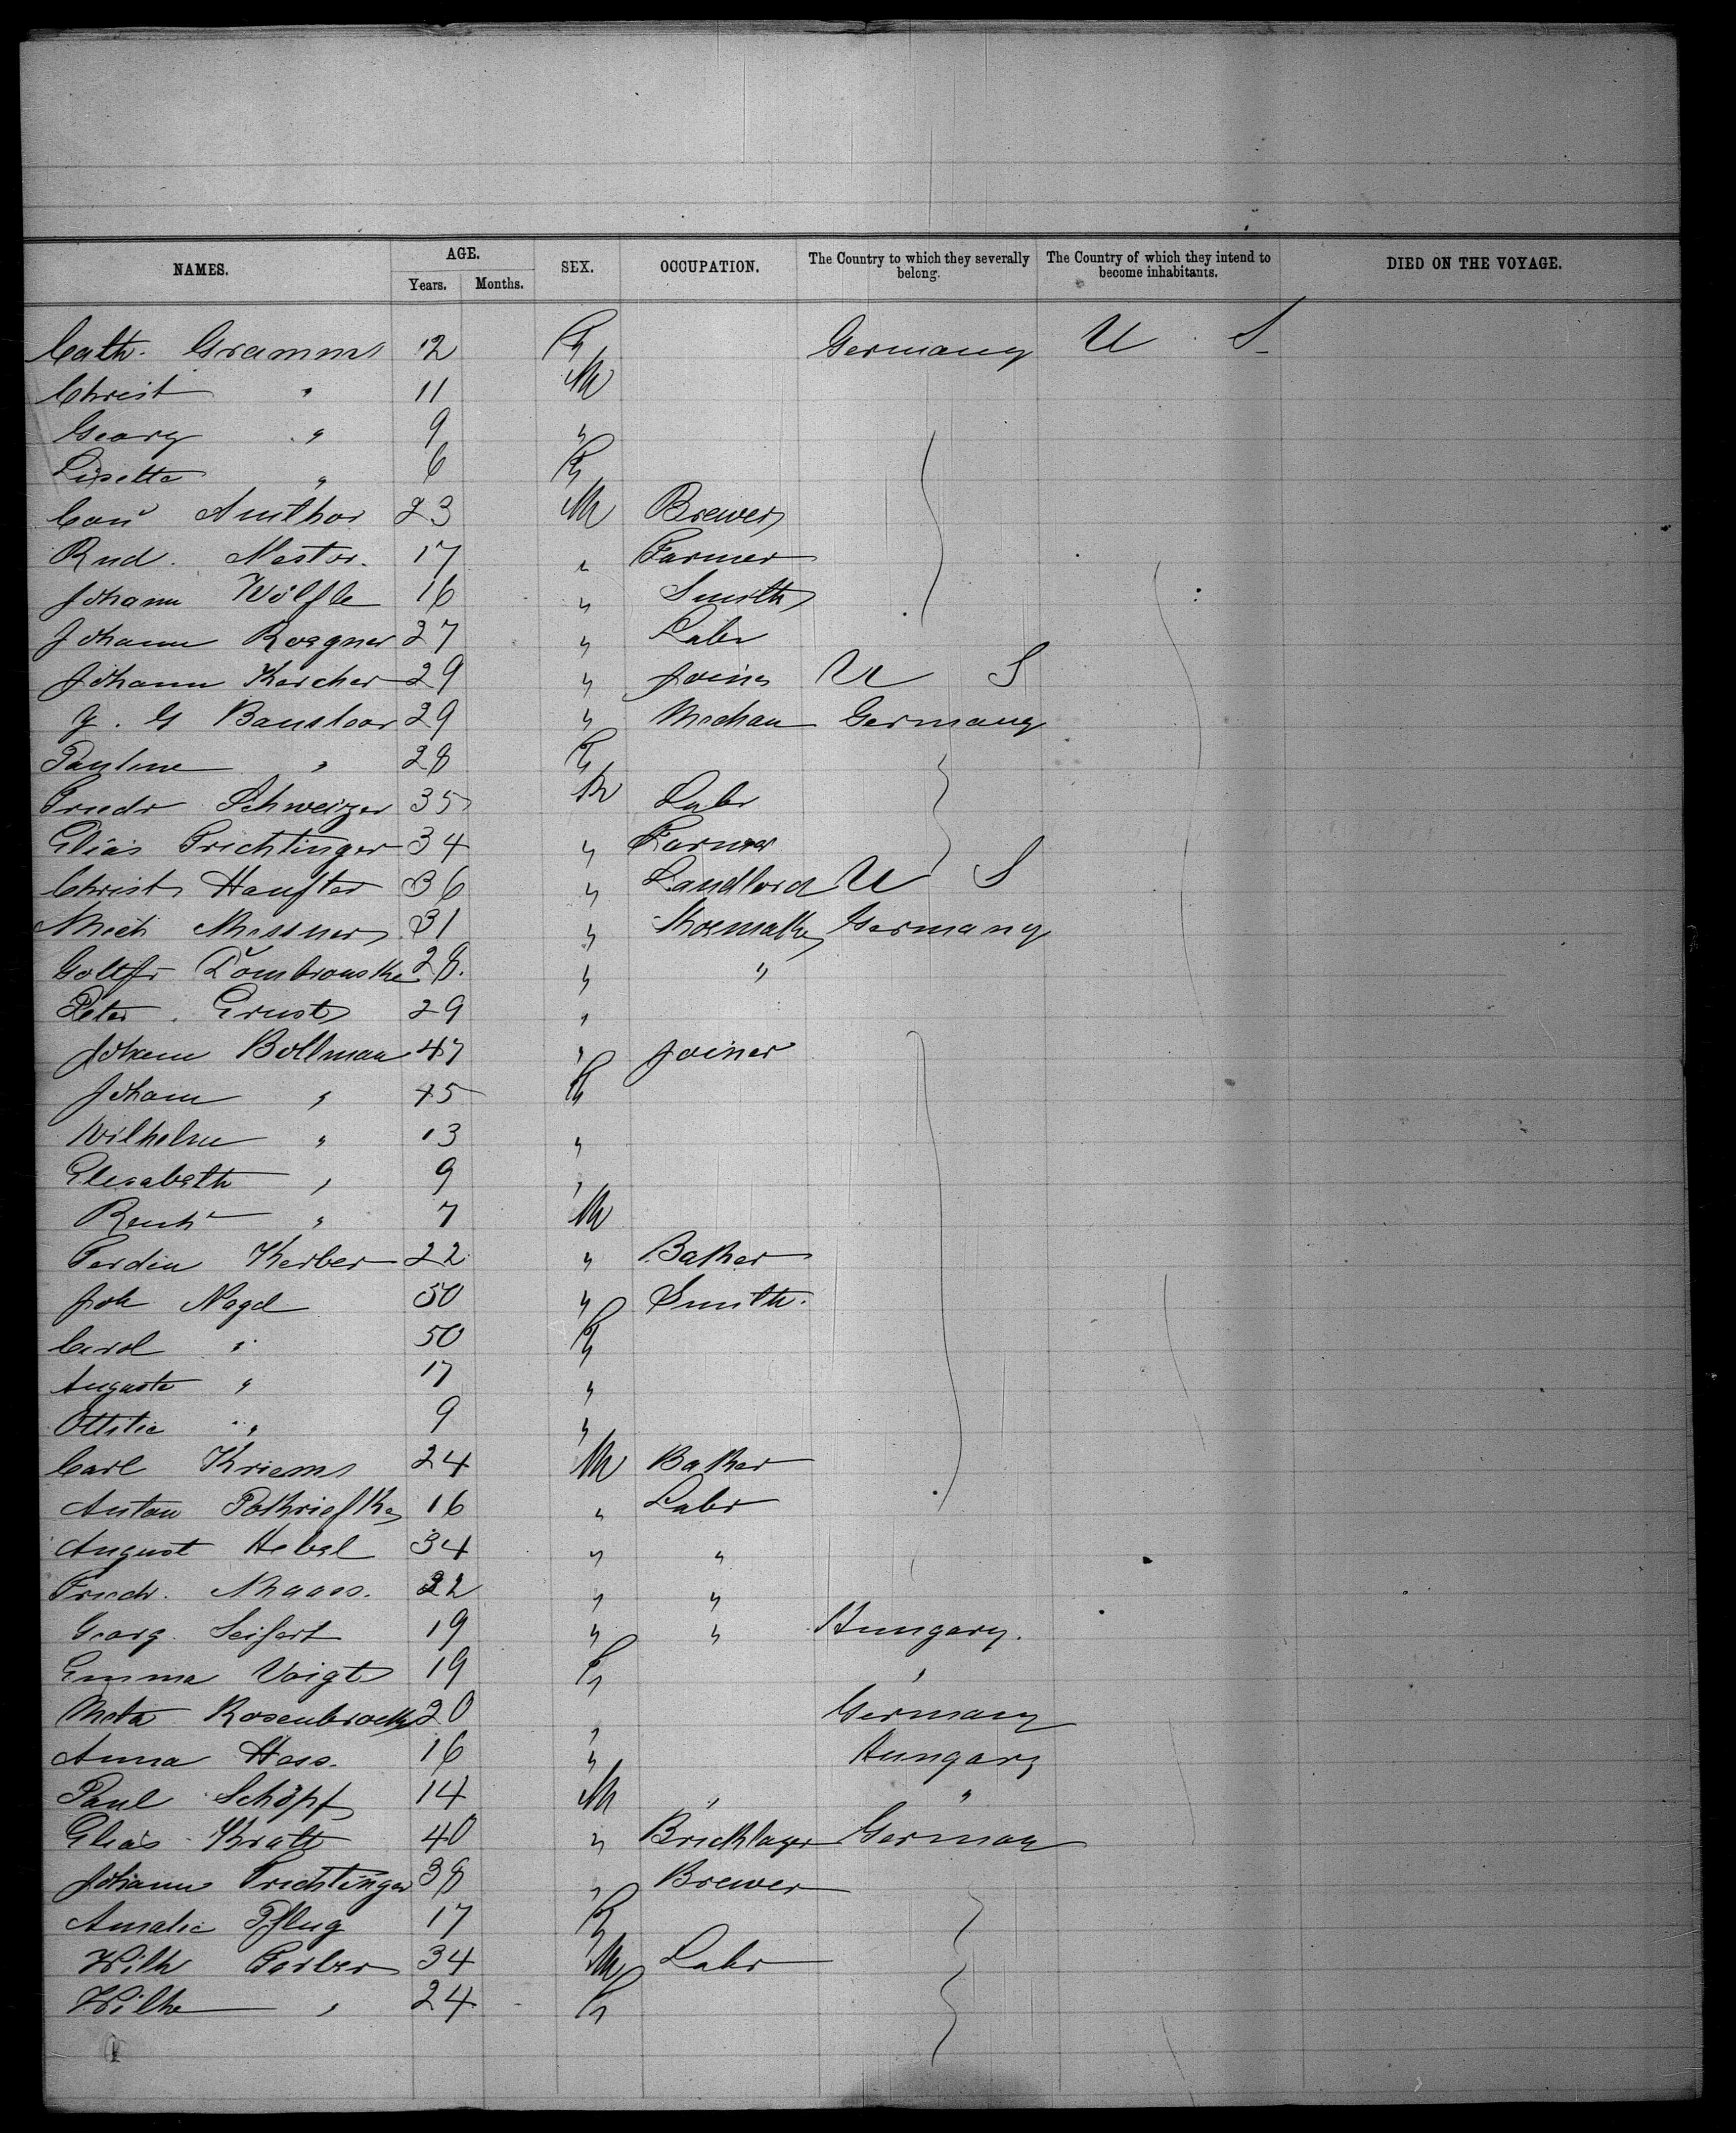 NAMES. AGE. SEX. OCCUPATION. The Country to which they severally belong. The Country of which they intend to become inhabitants. DIED ON THE VOYAGE.
Years. Months.
Cath. Gramms 12 F Germany U S
Christ " 11 M
Georg " 9 "
Lisette " 6 F
Amthor 23 M Brewer
Rud. Nestor. 17 " Farmer
Johann Wölfle 16 " Smith
Johann Roegner 27 " Labr
Johann Karcher 29 " Joiner U S
J. G 29 " Mechan Germany
Pauline " 28 F
Friedr Schweizer 35 M Labr
Elias Trichtinger 34 " Farmer
Christ 36 " Landlord U S
Mich Messner 31 " Germany
Gottfr 28. " "
Peter Ernst 29 "
Johann Bollman 47 " Joiner
Johann " 45 F
Wilhelm " 13 "
Elisabeth " 9 "
" 7 M
Ferdin Kerber 22 " Baker
Joh Nagel 50 " Smith.
Carol " 50 F
Auguste " 17 "
Ottilie " 9 "
Carl Kriems 24 M Baker
Anton 16 " Labr
August Hebel 34 " "
Friedr. Maass. 22 " "
Georg Seifert 19 " " Hungary.
Emma Voigt 19 F "
Meta Rosenbrock 20 " Germany
Anna Hess. 16 " Hungary
Paul Schöpf 14 M " "
Elias Kratt 40 " Bricklayer German
Johann Trichtinger 38 " Brewer
Amalie Pflug 17 F
Wilh Ferber 34 M Labr
Wilhe " 24 F